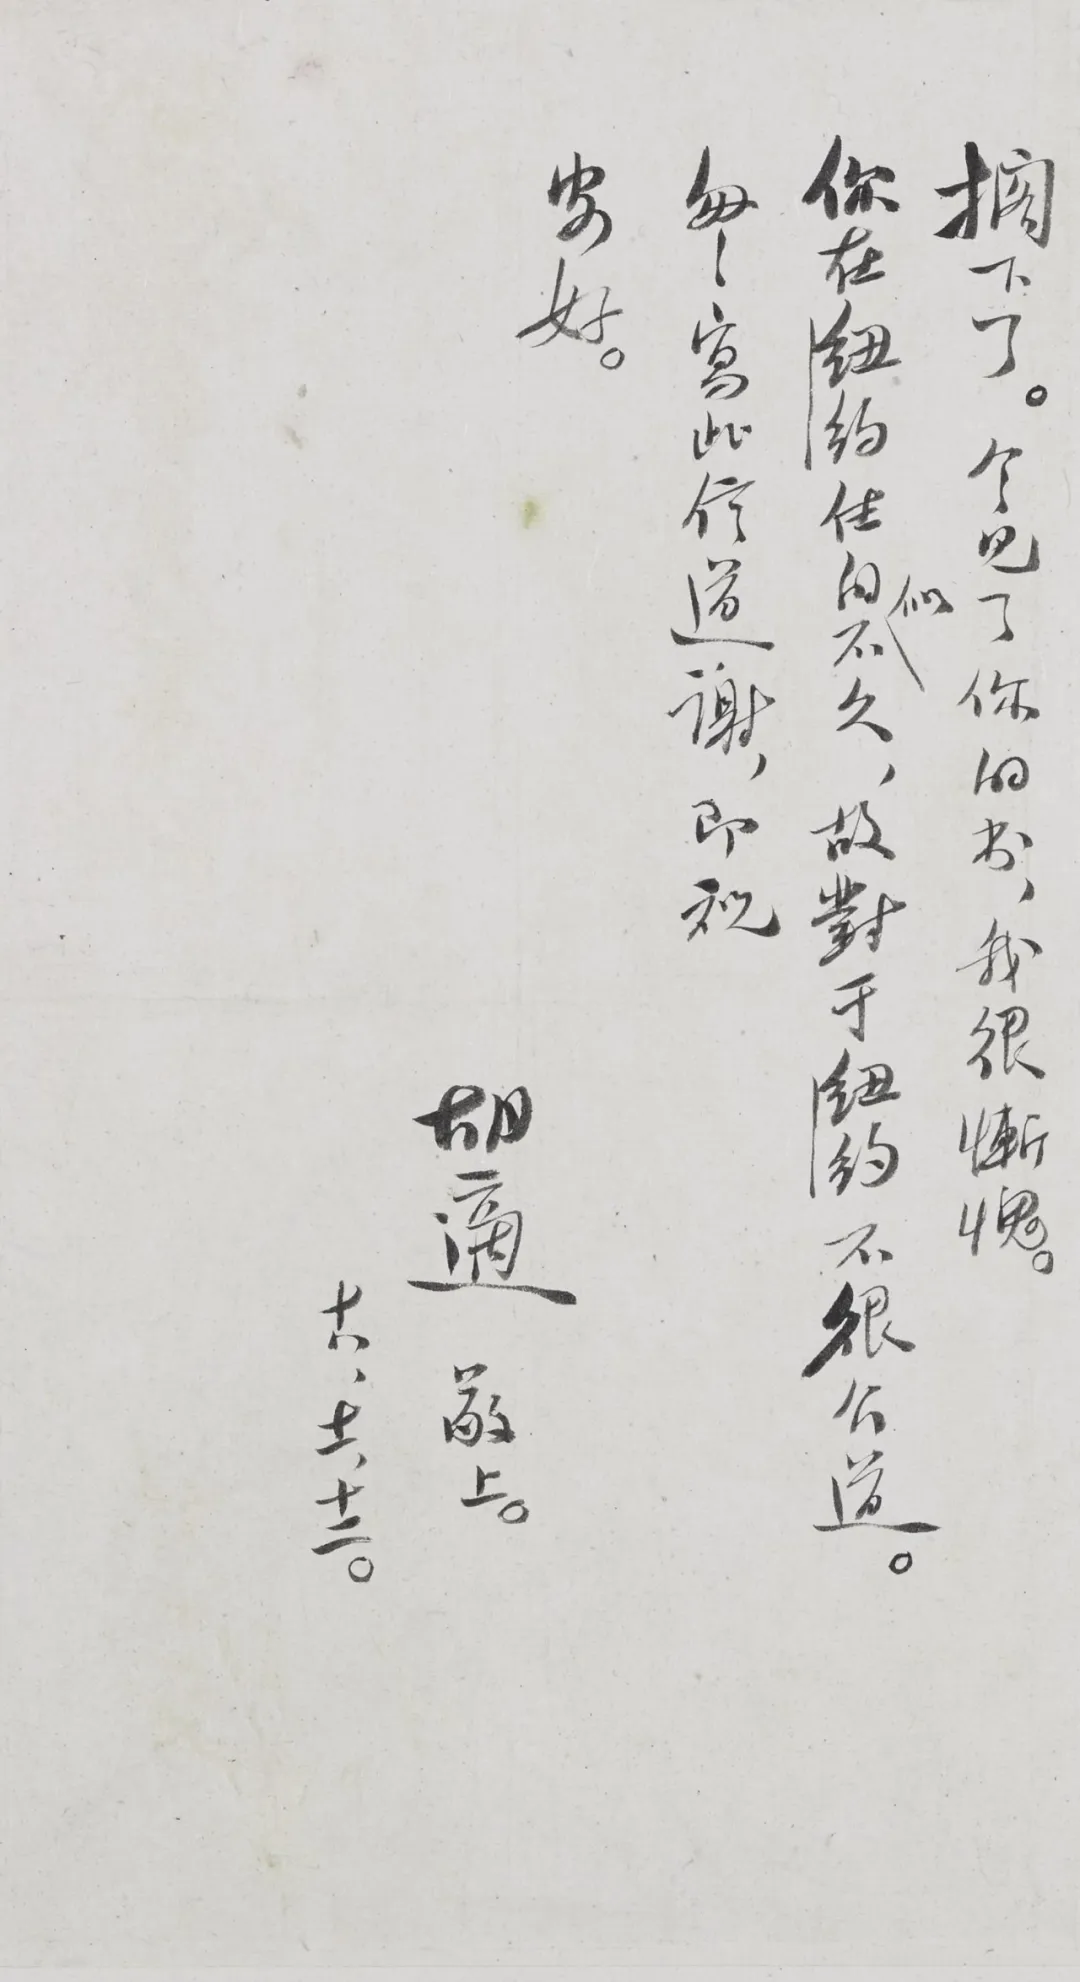 摘下了。今見了你的書,我很慚愧。
你在紐約住的似不久,故對于紐約不很公道。
匆匆寫此信道謝,即祝
安好。
胡適 敬上。
十八、十一、十二。